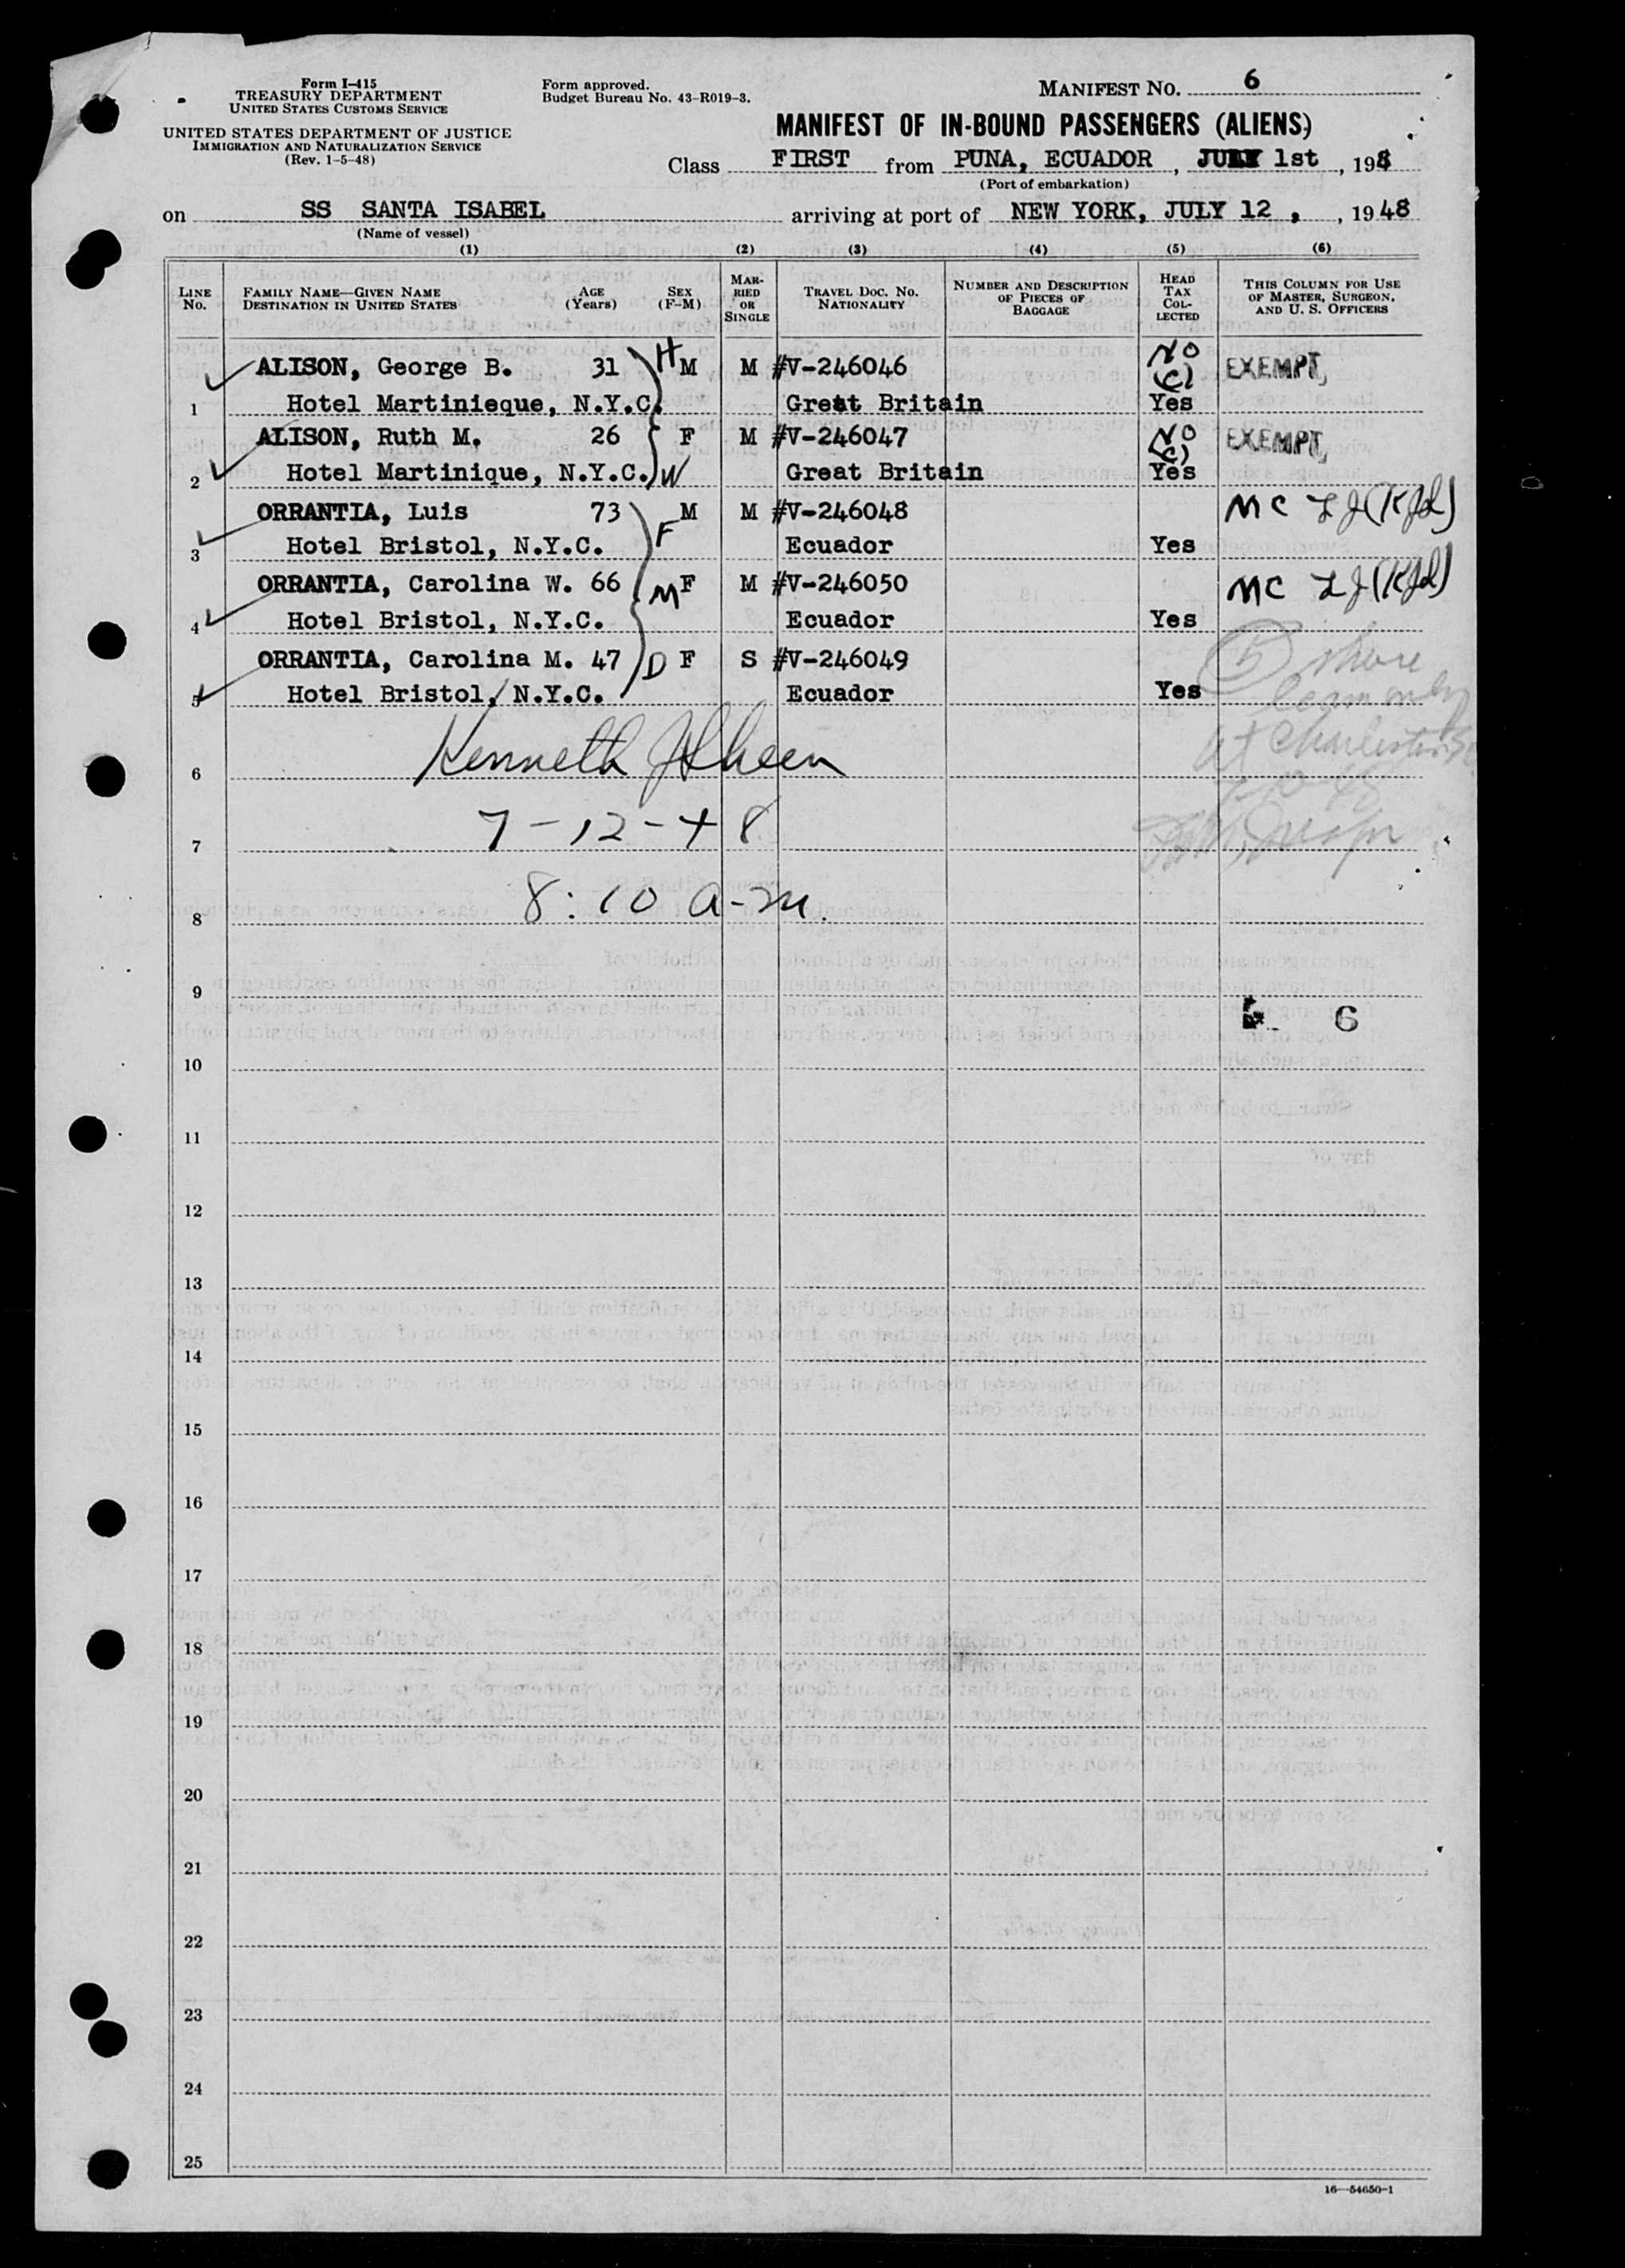 Form I-415
TREASURY DEPARTMENT
UNITED STATES CUSTOMS SERVICE
UNITED STATES DEPARTMENT OF JUSTICE
IMMIGRATION AND NATURALIZATION SERVICE
(Rev. 1-5-48)
Form approved.
Budget Bureau No. 43-R019-3.
MANIFEST NO. 6
MANIFEST OF IN-BOUND PASSENGERS (ALIENS)
Class FIRST from PUNA, ECUADOR, JULY 1st, 198
(Port of embarkation)
on SS SANTA ISABEL arriving at port of NEW YORK, JULY 12, , 1948
(Name of vessel)
(1) (2) (3) (4) (5) (6)
LINE No. FAMILY NAME—GIVEN NAME DESTINATION IN UNITED STATES AGE (Years) SEX (F-M) MARRIED OR SINGLE TRAVEL DOC. NO. NATIONALITY NUMBER AND DESCRIPTION OF PIECES OF BAGGAGE HEAD TAX COLLECTED THIS COLUMN FOR USE OF MASTER, SURGEON, AND U. S. OFFICERS
ALISON, George B. 31 H M M #V-246046 NO (C) EXEMPT,
1 Hotel Martinieque, N.Y.C. Great Britain Yes
ALISON, Ruth M. 26 F M #V-246047 NO (C) EXEMPT,
2 Hotel Martinique, N.Y.C. W Great Britain Yes
ORRANTIA, Luis 73 M M #V-246048 MC
3 Hotel Bristol, N.Y.C. F Ecuador Yes
ORRANTIA, Carolina W. 66 M F M #V-246050 MC
4 Hotel Bristol, N.Y.C. Ecuador Yes
ORRANTIA, Carolina M. 47 D F S #V-246049 (5) shore
5 Hotel Bristol, N.Y.C. Ecuador Yes only
at Charleston
6 Kenneth
7 7-12-48
8 8:10 a.m.
9
6
10
11
12
13
14
15
16
17
18
19
20
21
22
23
24
25
16—54650-1